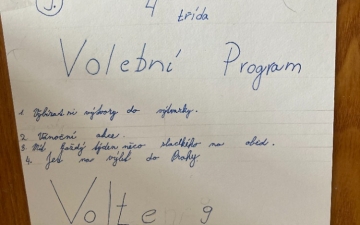 4
třída
Volební Program
1. Vybírat si výtvory do výtvarky.
2. Vánoční akce.
3. Mít každý týden něco sladkého na oběd.
4. Jet na výlet do Prahy
Volte